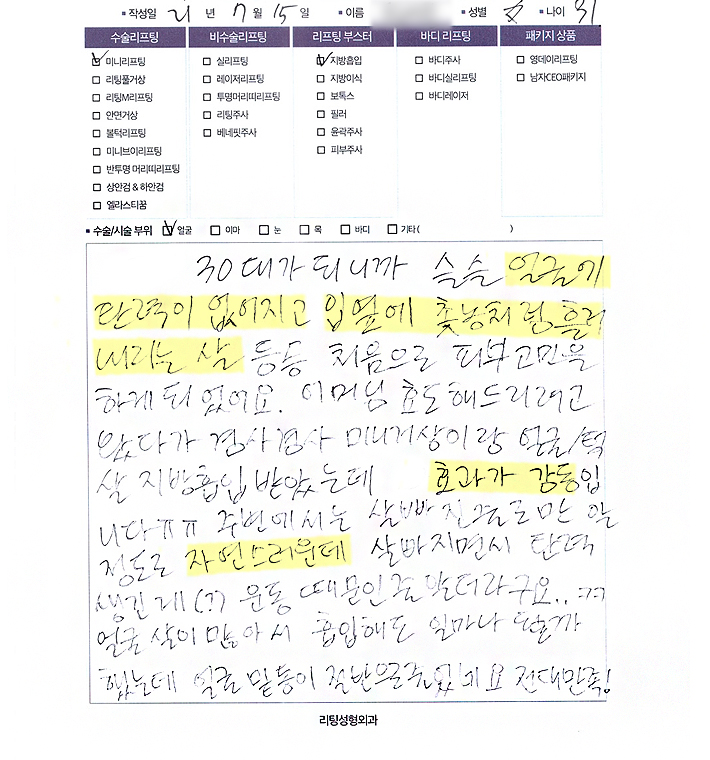 ▪ 작성일 21 년 7 월 15 일 ▪ 이름 ▪ 성별 ▪ 나이 31
수술리프팅 비수술리프팅 리프팅 부스터 바디 리프팅 패키지 상품
미니리프팅 실리프팅 지방흡입 바디주사 영데이리프팅
리팅풀거상 레이저리프팅 지방이식 바디실리프팅 남자CEO패키지
리팅M리프팅 투명머리띠리프팅 보톡스 바디레이저
안면거상 리팅주사 필러
볼턱리프팅 베네핏주사 윤곽주사
미니브이리프팅 피부주사
반투명 머리띠리프팅
상안검 & 하안검
엘라스티꿈
▪ 수술/시술 부위 얼굴 이마 눈 목 바디 기타( )
30대가 되니까 슬슬 얼굴기
탄력이 없어지고 입옆에 촛농처럼 흘러
내리는 살 등등 처음으로 피부고민을
하게 되었어요. 이머님 효도해드리려고
왔다가 겸사겸사 미니거상이랑 얼굴/턱
살 지방흡입 받았는데 효과가 감동입
니다ㅠㅠ 주변에서는 살빠진줄로만 알
정도로 자연스러운데 살빠지면서 탄력
생긴게(?) 운동 때문인줄 알더라구요.. ㅋㅋ
얼굴 살이 많아서 흡입해도 얼마나
했는데 얼굴 밑둥이 절반으로 전대만족!
리팅성형외과